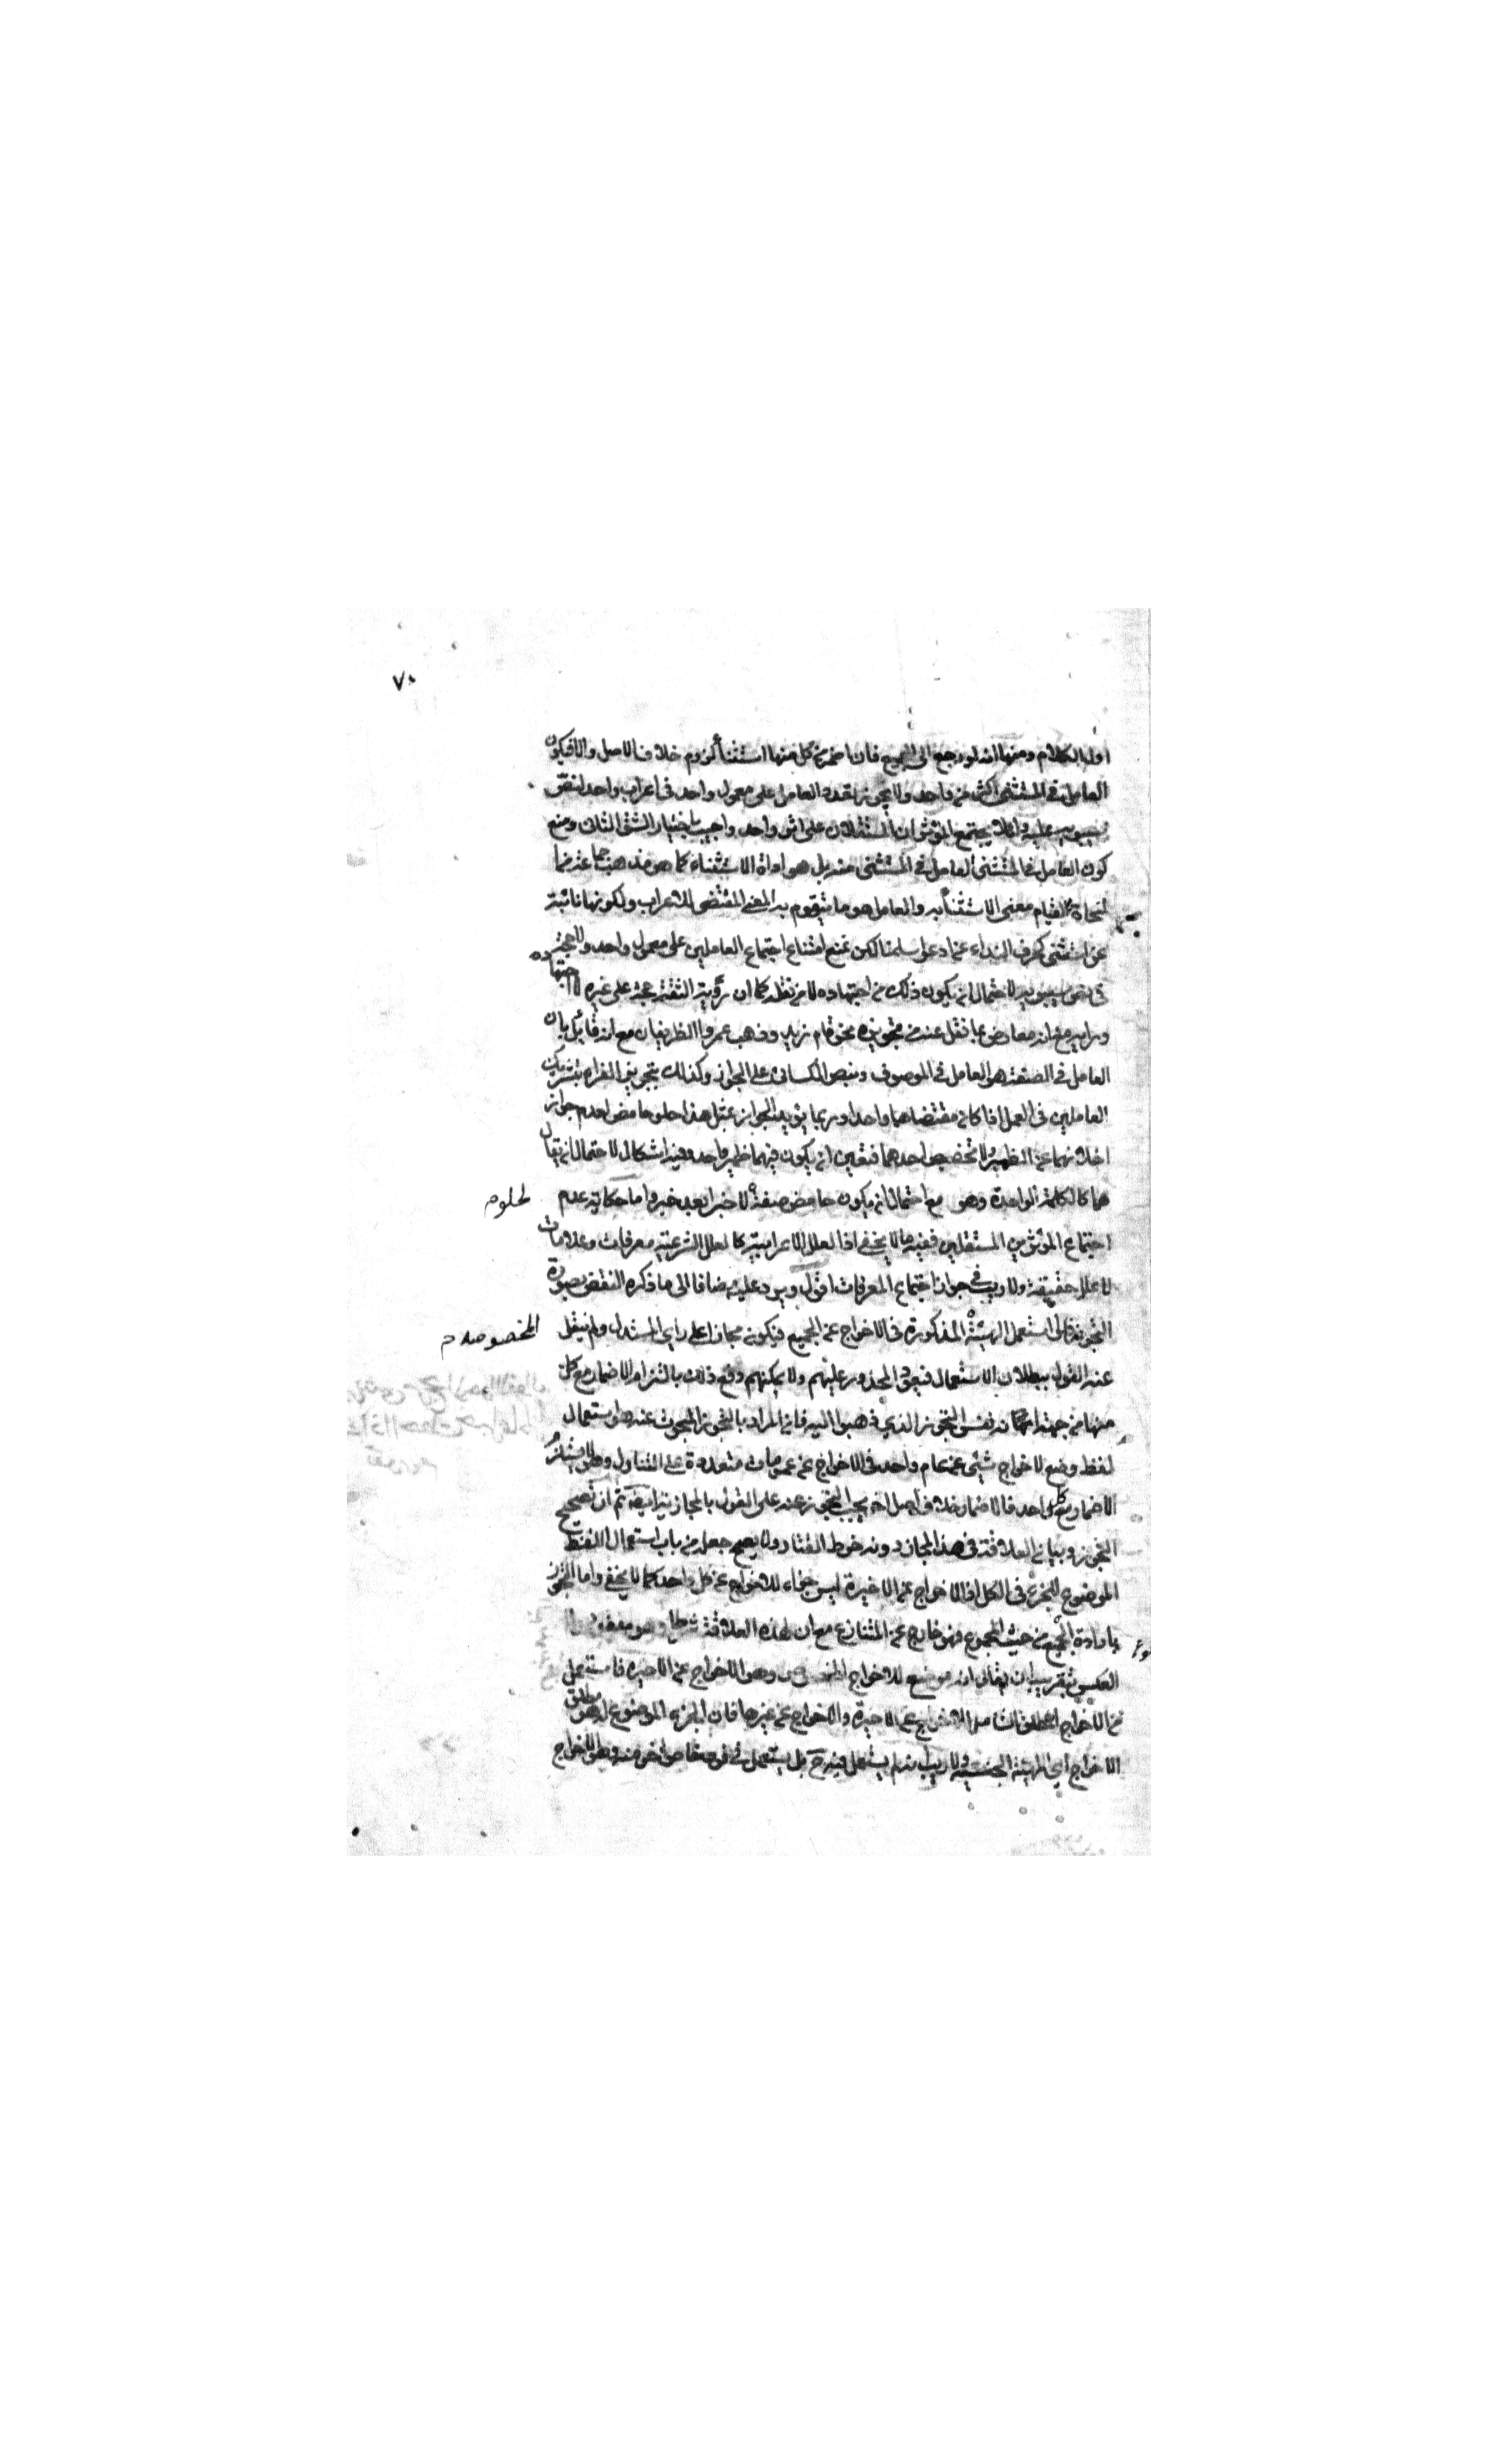 ٧٠
اول الكلام ومنها انه لو رجع الى الجميع فان اضمر مع كل منها استثناء لزوم خلاف الاصل والا فيكون
العامل في المستثنى اكثر من واحد ولا يجوز تعدد العامل على معمول واحد في اعراب واحد لنص
سيبويه عليه ولئلا يجتمع المؤثران المستقلان على اثر واحد واجيب باختيار الشق الثاني ومنع
كون العامل في المستثنى العامل في المستثنى منه بل هو اداة الاستثناء كما هو مذهب جماعة من
النحاة لقيام معنى الاستثناء به والعامل هو ما يتقوم به المعنى المقتضى للاعراب ولكونها نائبة
عن استثنى كحرف النداء عن ادعو سلمنا لكن نمنع امتناع اجتماع العاملين على معمول واحد ولا حجة
في نص سيبويه لاحتمال ان يكون ذلك من اجتهاده لا من نقله كما ان رؤية الثقة حجة على غيره لا اجتهاده
ورايه مع انه معارض بما نقل عنه من تجويزه نحو قام زيد وذهب عمرو الظريفان مع انه قائل بان
العامل في الصفة هو العامل في الموصوف وبنص الكسائي على الجواز وكذلك تجويز الفراء بتشريك
العاملين في العمل اذا كان مقتضاهما واحدا وربما يؤيد الجواز بمثل هذا حلو حامض لعدم جواز
اخلائهما عن الضمير ولا تخصيص احدهما فتعين ان يكون فيهما ضمير واحد وفيه اشكال لاحتمال ان يقال
هما كالكلمة الواحدة وهو مع احتمال ان يكون حامض صفة لا خبرا بعد خبر واما حكاية عدم
لحلو م
اجتماع المؤثرين المستقلين ففيه ما لا يخفى اذ العلل الاعرابية كالعلل الشرعية معرفات وعلامات
لا علل حقيقة ولا ريب في جواز اجتماع المعرفات اقول ويرد عليه مضافا الى ما ذكره النقض بصورة
التجوز استعمل الهيئة المذكورة في الاخراج عن الجميع فيكون مجازا على راي المستدل ولم ينقل
المخصوصة م
عنه القول ببطلان الاستعمال فيعود المحذور عليهم ولا يمكنهم دفع ذلك بالتزام الاضمار مع كل
منها من جهة نفس التجوز الذي ذهبوا اليه فان المراد بالتجوز المبحوث عنه هو استعمال
لفظ وضع لاخراج شيء عن عام واحد في الاخراج عن عمومات متعددة على التناول وهو لا يستلزم
الاضمار مع كل واحد فالاضمار خلاف اصل اخر يجب التجوز عنه على القول بالمجازية ايضا ثم ان تصحيح
التجوز وبيان العلاقة في هذا المجاز دونه خرط القتاد ولا يصح جعله من باب استعمال اللفظ
الموضوع للجزء في الكل اذ الاخراج عن الاخيرة ليس جزء للاخراج عن كل واحد كما لا يخفى واما التجوز
بارادة الجميع من حيث المجموع فهو خارج عن المتنازع مع ان لهذه العلاقة
العكس بتقريب ان يقال انه موضوع للاخراج المخصوص وهو الاخراج عن الاخيرة فاستعمل
في الاخراج المطلق الشامل للاخراج عن الاخيرة والاخراج عن غيرها فان الجزء الموضوع له هو مطلق
الاخراج اي الهيئة الجنسية ولا ريب انه لم يستعمل فيه ح بل يستعمل في فرد خاص اخر منه وهو الاخراج